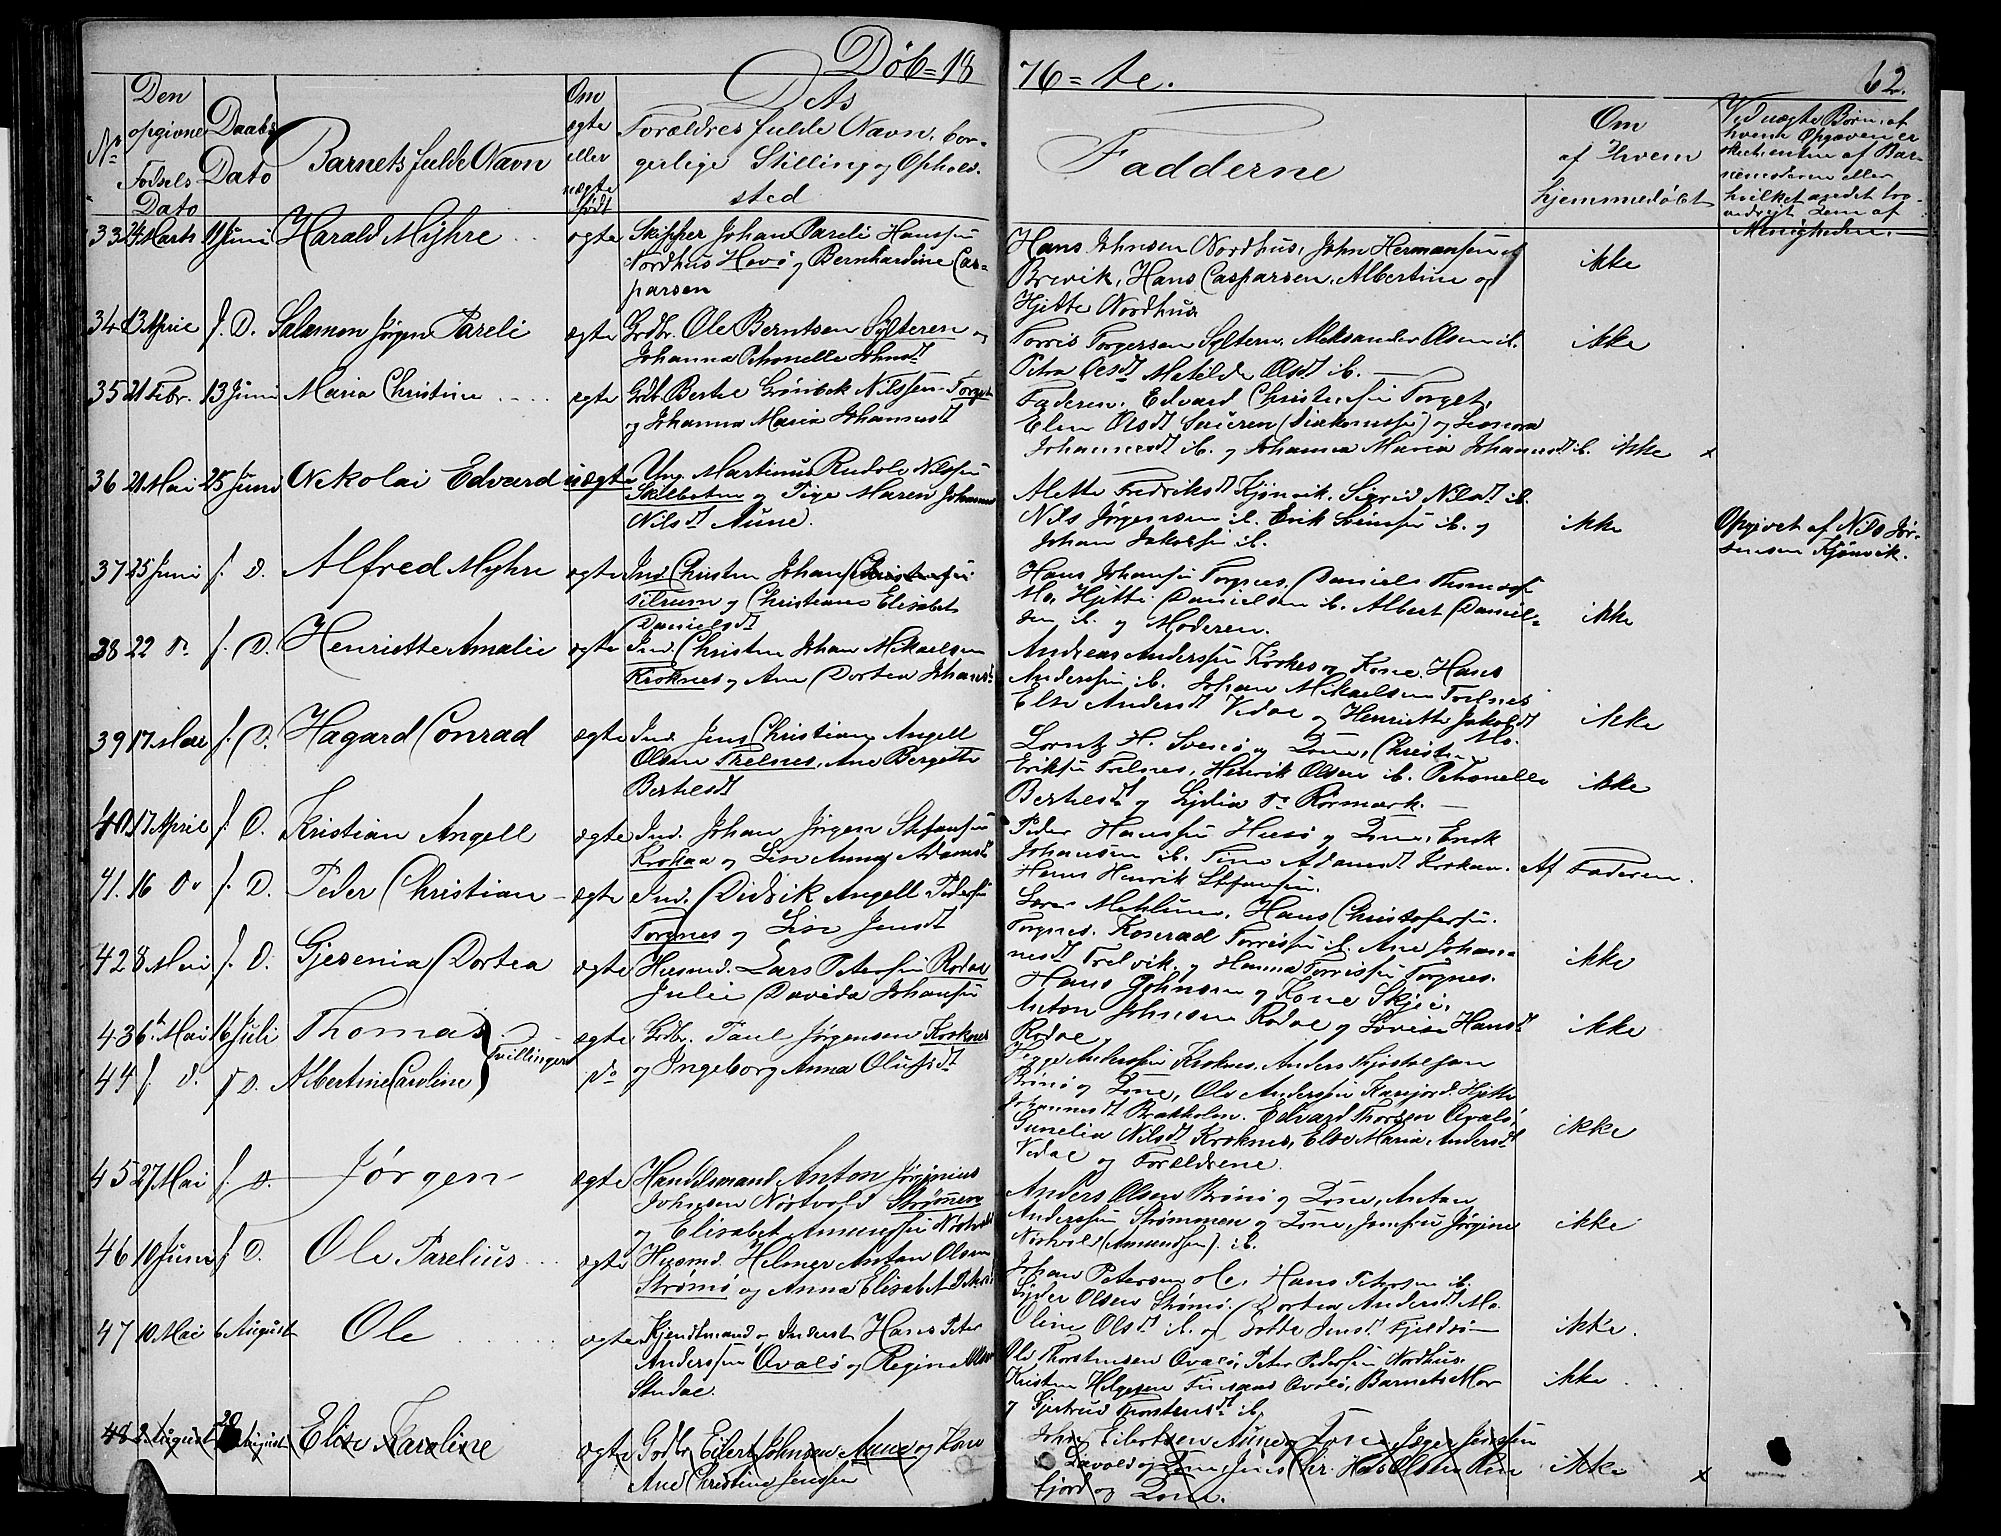 Døb=18
76=te.
62.
Nr
Den
opgivne
Fødsels
Dato
Daabs
Dato
Barnets fulde Navn
Om
ægte
eller
uægte
født
Dets
Forældres fulde Navn, bor-
gerlige Stilling og Opholds-
sted
Fadderne
Om
af Hvem
hjemmedøbt
Ved uægte Børn, af
hvem Opgaven er
skeet, enten af Bar-
nemoderen eller
hvilket andet tro-
værdigt Lem af
Menigheden.
33 24 Marts 11 Juni Harald Myhre ægte Skipper Johan Pareli Hanssen
Nordhus Havø og Bernhardine Cas-
parsen
Hans Johnsen Nordhus, John Hermansen
Brevik, Hans Casparsen, Albertine og
Hjitte Nordhus
ikke
34 13 April f. D. Salamon Jørgen Pareli ægte Grdbr. Ole Berntsen Sylteren og
Johanna Petronelle Johnsdt
Torris Torgersen Sylteren, Aleksander Olsen ib.
Petra Olsdt Matilde Olsdt ib.
ikke
35 21 Febr. 13 Juni Maria Christine ægte Grdb. Bertel Grønbek Nilssen Torget
og Johanna Maria Johannesdt
Faderen, Edvard Torget,
Elen Olsdt og Leonora
Johannesdt ib. og Johanna Maria Johannesdt ib. ikke x
36 21 Mai 25 Juni Nikolai Edvard uægte Ung. Martinus Rudolf Nilssen
Skilbotn og Pige Maren Johanna
Nilsdt Aune.
Alette Fredriksdt Kjønvik, Sigrid Nilsdt ib.
Nils Jørgensen ib. Erik ib. og
Johan Jakobsen ib.
ikke
Opgivet af Nils Jør-
gensen Kjønvik.
37 25 Juni f. D. Alfred Myhre ægte Ind. Christen Johan Christensen
Tilrum og Christiane Elisabet
Danielsdt
Hans Johansen Torgnes, Daniel Thomassen
Mo, Hjitte Danielsen ib. Albert Daniel-
sen ib. og Moderen.
ikke
38 22 Do f. D. Henriette Amalie ægte Ind. Christen Johan Mikaelsen
Kroknes og Ane Dortea Johansdt
Andreas Anderssen Kroknes og Kone, Hans
Anderssen ib. Johan Mikaelsen Trelnes
Else Andersdt Vedae og Henriette Jakobsdt
Mo.
ikke
39 17 Mai f. D. Hagard Conrad ægte Ind. Jens Christian Angell
Olsen Trelnes, Ane Bergitte
Bertelsdt
Lorntz H. Svensø og Kone, Christen
Eriksen Trelnes, Henrik Olsen ib. Petronelle
Bertelsdt og Lydia Do Rørmark.
ikke
40 17 April f. D. Kristian Angell ægte Ind. Johan Jørgen Stefansen
Krokaa og Lise Anna Adamsdt
Peder Hanssen Husø og Kone, Erik
Johansen ib. Tina Adamsdt Krokaa.
Hans Henrik Stefansen.
Af Faderen.
41. 16 Do f. D. Peder Christian ægte Ind. Didrik Angell Pedersen
Torgnes og Lise Jensdt
Hans Christofersen
Torgnes, Konerad Torrissen ib. Ane Johan-
nesdt Trelvik, og Hanna Torrissen Torgnes.
ikke
42 8 Mai f. D. Gjesenia Dortea ægte Husmd. Lars Petersen Rodae
Julie Davida Johansen
Hans Johnsen og Kone Skjei,
Anton Johnsen Rodae og Lovise Hansdt
Rodae,
ikke
43 6 Mai 16 Juli Thomas } Tvillinger ægte Grdbr. Paul Jørgensen Kroknes
44 f. D. f. D. Albertine Caroline } Do og Ingeborg Anna Olufsdt
Anderssen Kroknes, Anders
Brønø og Kone, Ole Anderssen Hjitte
Johannesdt Brakholm. Edvard Thorsen Qvalø,
Nilsdt Kroknes, Else Maria Andersdt
Vedae og Forældrene.
ikke
45 27 Mai f. D. Jørgen ægte Handelsmand Anton Jørginius
Johnsen Nortvold Strømmen
og Elisabet Amundsen Nortvold
Anders Olsen Brønø og Kone, Anton
Anderssen Strømmen og Kone, Jørgine
Nortvold (Amundsen) ib.
ikke
46 10 Juni f. D. Ole Parelius ægte Husmd. Helmer Anton Olsen
Strømø og Anna Elisabet
Johan Petersen Hans Petersen ib.
Peder Olsen Strømø. Dortea Andersdt Mo.
Oline Olsdt ib. og Lotte Jensdt
ikke.
47 10 Mai 6 August Ole ægte Gjendtmand og Inderst Hans Peter
Anderssen Qvalø og Regina Olsen
Studae.
Ole Thorstensen Qvalø, Peter Pedersen Nordhus.
Kristen Helgesen Qvalø, Barnets Mor
og Gjertrud Thorstensdt ib.
ikke
48 2 August 20 August Elise Karoline ægte Grdbr. Eilert Johnsen Aune og Kone
Ane Christine Jensen
John Eilertsen Aune og Kone, Jæger Jenssen
og Kone Jens Chr. Olsen
fjord og Kone.
ikke x